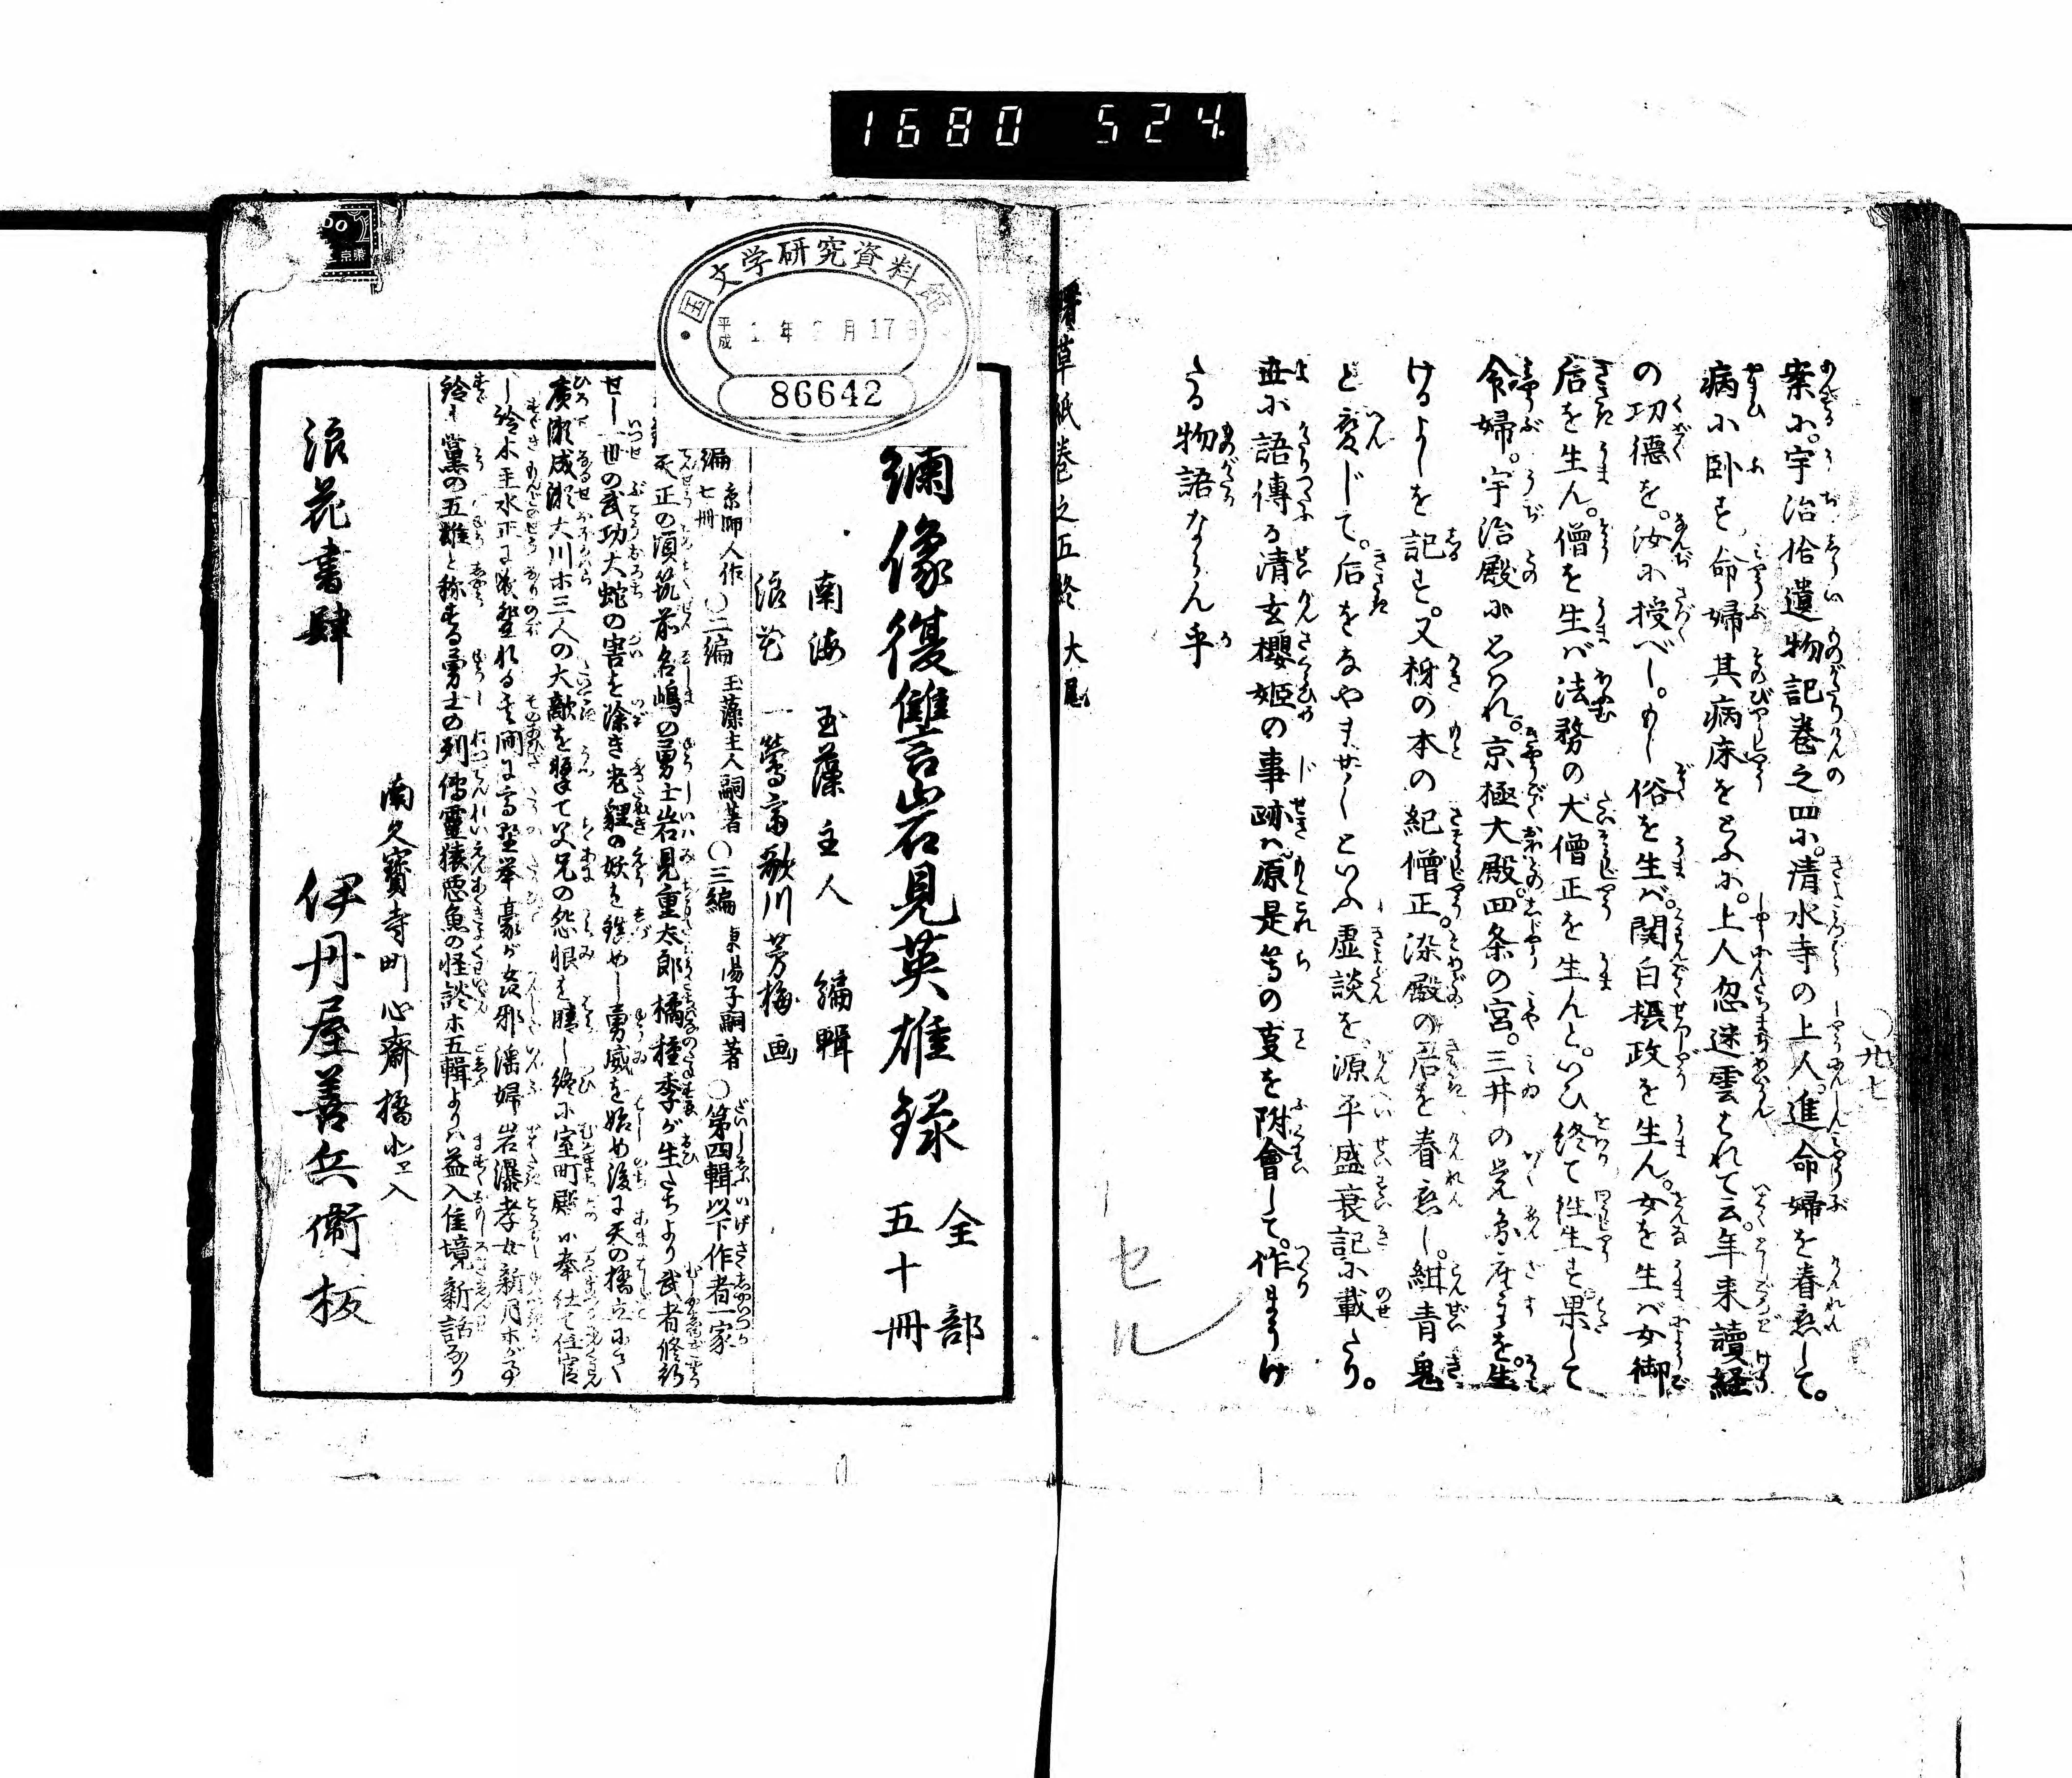 1680 524
案小。宇治拾遺物記巻之四小。清水寺の上人。進命婦を眷恋して。
病小卧す。命婦其病床をとふ小。上人忽迷雲はれて云。年来讀経
の功徳を。汝小授べし。もし俗を生バ。関白摂政を生ん。女を生バ女御
后を生ん。僧を生バ法務の大僧正を生んと。いひ終て往生す。果して
命婦。宇治殿小思はれ。京極大殿。四条の宮。三井の覚円座主を。生
けるよしを記す。又柹の本の紀僧正。染殿の后を眷恋し。紺青鬼
と変じて。后をなやませしといふ虚談を。源平盛衰記小載たり。
世小語傳る清玄櫻姫の事跡ハ。原是等の事を附會して。作まうけ
たる物語ならん乎
〇廿七
草紙巻之五終 大尾
セル
国文学研究資料館
平成 年 月17日
86642
繍像復讐言岩見英雄録 全部五十冊
南海 玉藻主人 編輯
浪花 一鶯斎歌川芳梅画
編七冊 京師人作 〇二編 玉藻主人嗣著 〇三編 東陽子嗣著 〇第四輯以下作者一家
天正の頃筑前名嶋の勇士岩見重太郎橘種季が生たちより武者修行
せし一世の武功大蛇の害を除き老貍の妖を鎮めし勇威を始め後に天の橋立小て
廣瀬成瀬大川ホ三人の大敵を撃て父兄の怨恨を
鈴木主水正
黨の五雄と称する勇士の列傳靈猿悪魚の怪談ホ五輯よりハ益入佳境新話なり
南久寳寺町心斎橋北エ入
浪花書肆 伊丹屋善兵衛板